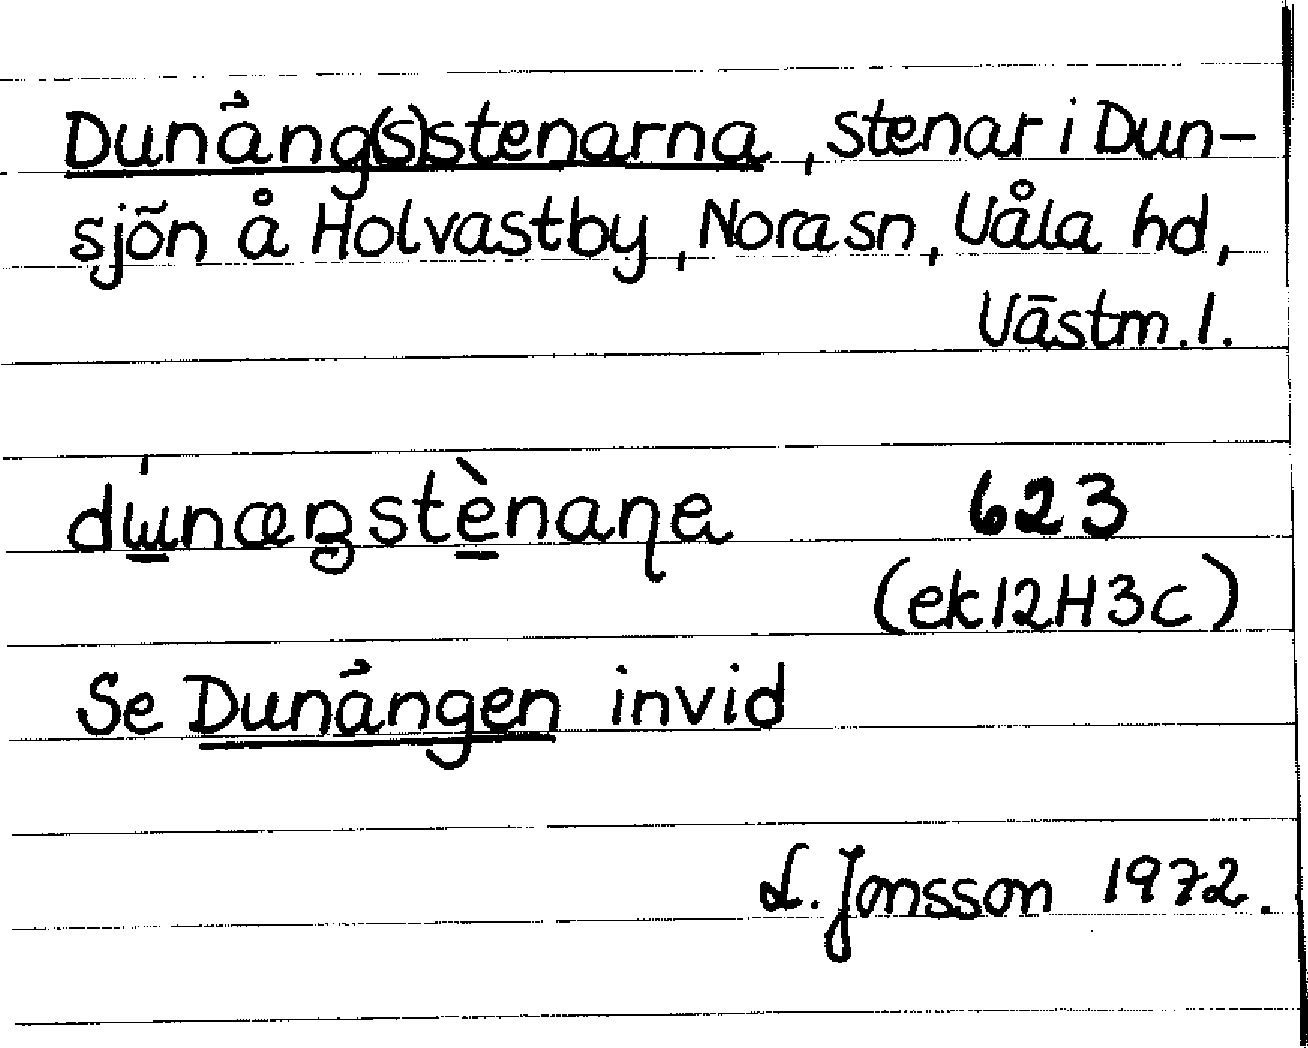 Dunäng(s)stenarna, stenar i Dun-
sjön å Holvastby, Nora sn, Våla hd,
Västm. l.
623
(ek 12H3c)
Se Dunängen invid
L. Jonsson 1972.